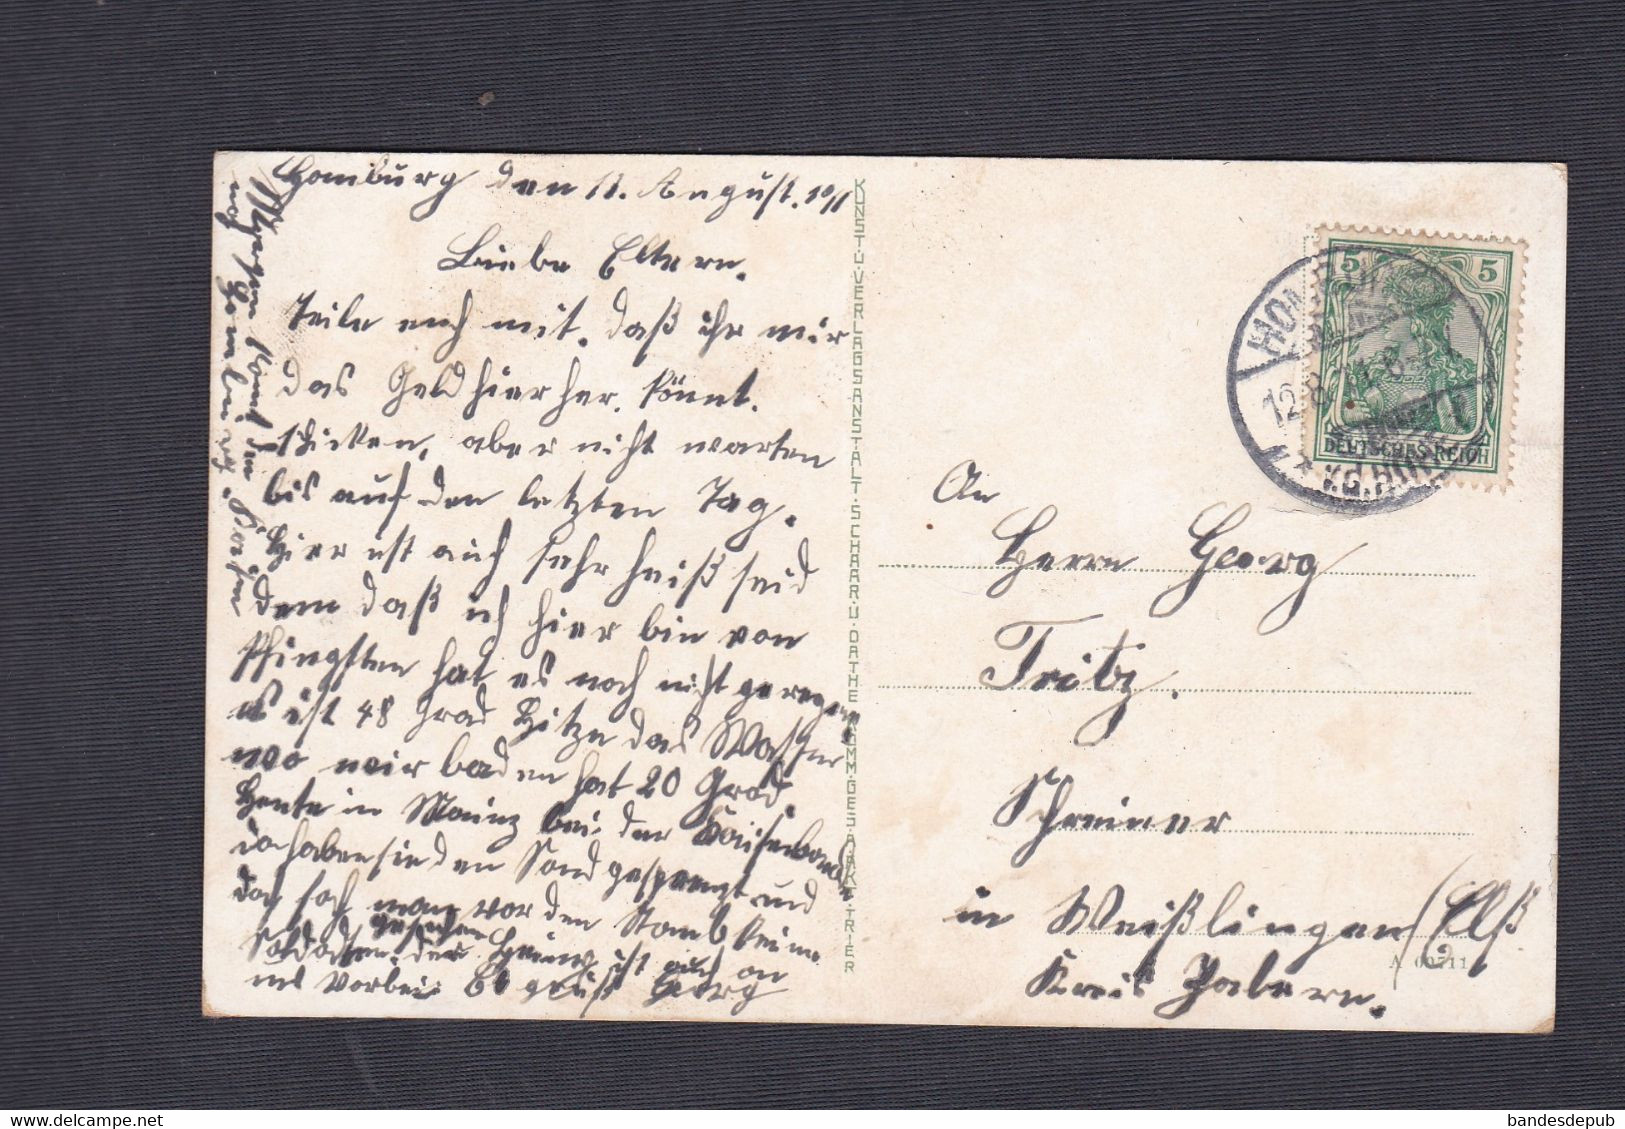 Homburg den 11. August. 1911
Liebe Eltern.
Teile euch mit. daß ihr mir
das Geld hierher. könnt.
schicken, aber nicht warten
bis auf den letzten Tag.
Hier ist auch sehr heiß seid
dem daß ich hier bin von
Pfingsten hat es noch nicht geregent
es ist 48 Grad Hitze das Wasser
wo wir baden hat 20 Grad.
Heute in Mainz bei der
da haben sie den Sand gesprengt und
doch sah man vor den Staub keine
Soldaten. der ist auch an
uns vorbei Es grüßt Georg
Morgen kommt der
nach Homburg.
KUNST U. VERLAGSANSTALT SCHAAR U. DATHE KOMM. GES. A. AKT. TRIER
5 5
DEUTSCHES REICH
HOMBURG
12.8.11. 6-7
v.d. HÖHE
An
Herrn Georg
Fritz.
Schreiner
in Weißlingen (Elß
Kreis Zabern.
bandesdepub